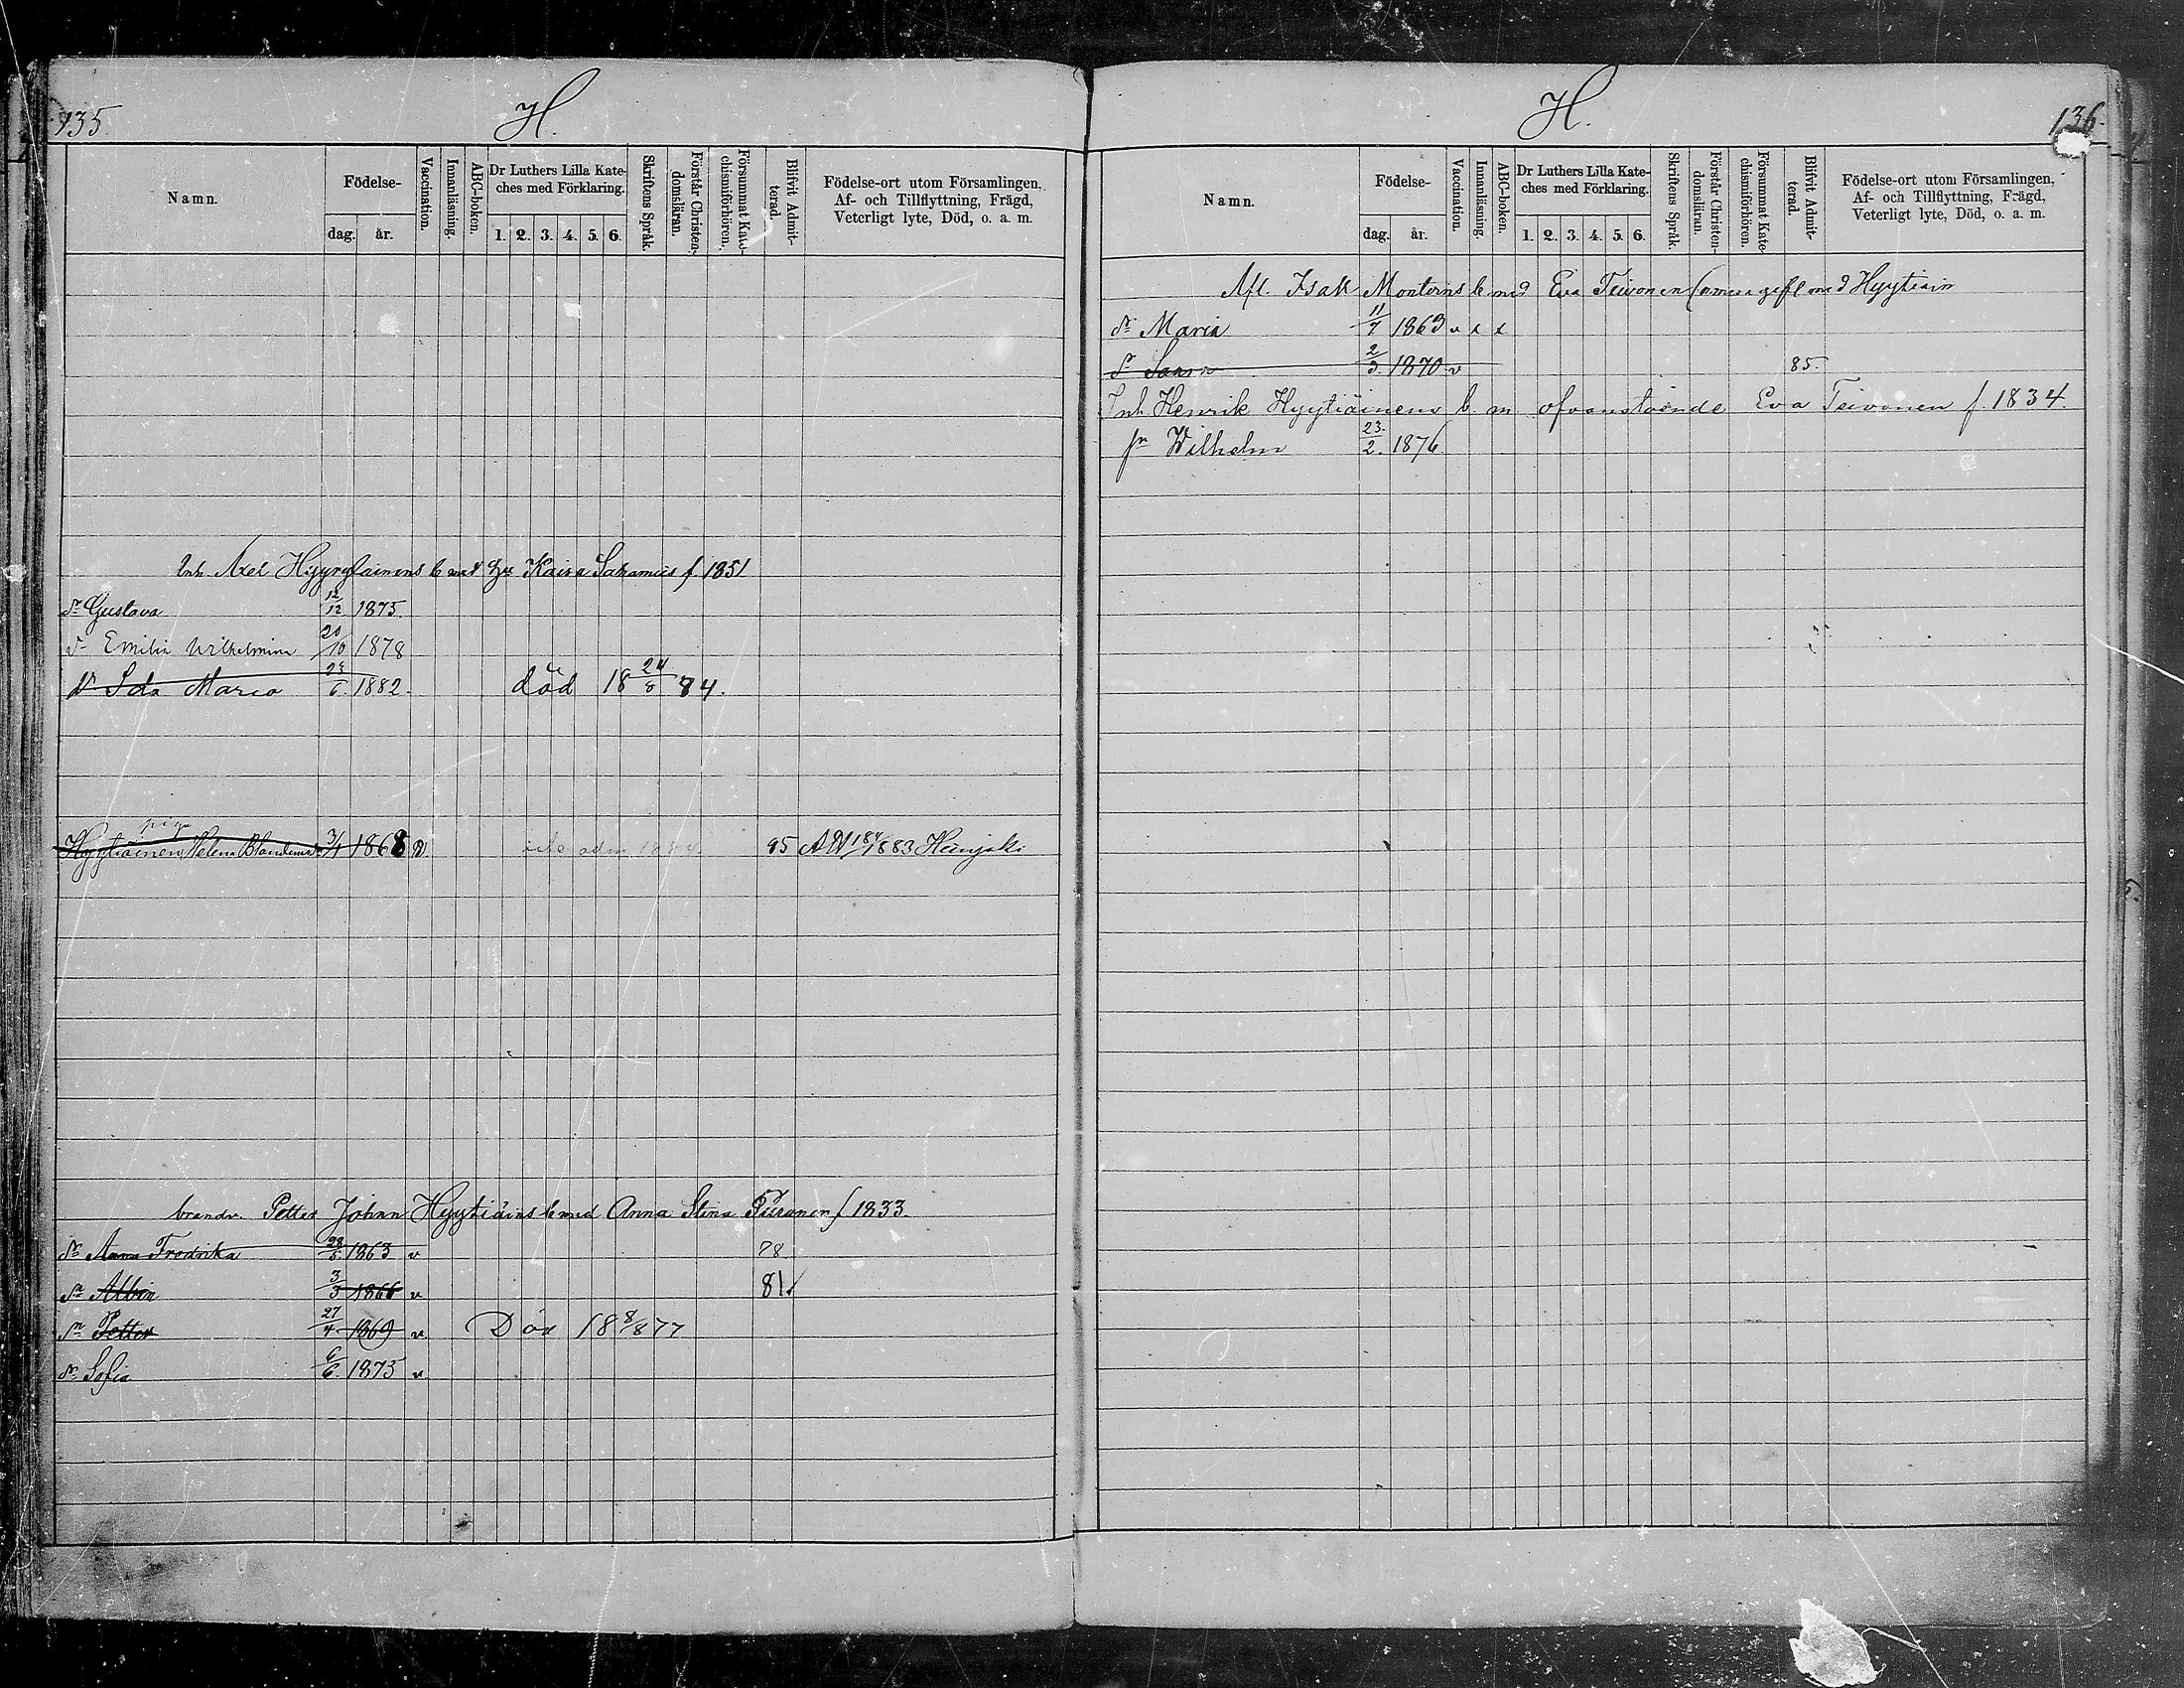 135.
H.
Namn.
Födelse-
dag.
år.
Vaccination.
Innanläsning.
ABC-boken.
Dr Luthers Lilla Kate-
ches med Förklaring.
1. 2. 3. 4. 5. 6.
Skriftens Språk.
Förstår Christen-
domsläran.
Försummat Kate-
chismiförhören.
Blifvit Admit-
terad.
Födelse-ort utom Församlingen,
Af- och Tillflyttning, Frägd,
Veterligt lyte, Död, o. a. m.
Inh. Axel b med Kaisa f. 1851
dr Gustava 12/12 1875.
dr Emilia Wilhelmina 20/10 1878
dr Ida Maria 6. 1882. död 18 24/8 84.
piga
Hyytiäinen Helena 3/4 1868 v. 95
Petter Johan Hyytiäins b med Anna Stina f 1833.
dr Anna Fredrika 28/5 1863 v 78
sn Albin 3/3 1866 v 81
sn Petter 27/4 1869 v Död 18 8/8 77
dr Sofia 6/6. 1873 v
H.
136.
Namn.
Födelse-
dag.
år.
Vaccination.
Innanläsning.
ABC-boken.
Dr Luthers Lilla Kate-
ches med Förklaring.
1. 2. 3. 4. 5. 6.
Skriftens Språk.
Förstår Christen-
domsläran.
Försummat Kate-
chismiförhören.
Blifvit Admit-
terad.
Födelse-ort utom Församlingen,
Af- och Tillflyttning, Frägd,
Veterligt lyte, Död, o. a. m.
Afl. Isak b med Eva Teivonen
dr Maria 11/7 1863 v x x
dr 2/3. 1870 v 85.
Inh. Henrik Hyytiäinens b. m ofvanstående Eva Teivonen f. 1834.
sn Wilhelm 23/2. 1876